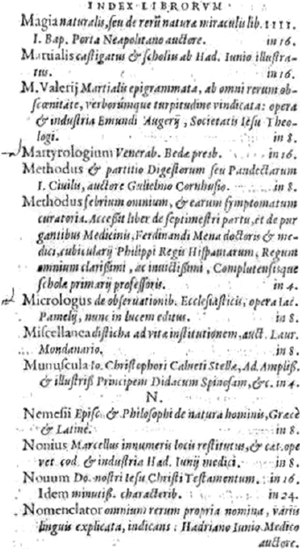 INDEX LIBRORVM
Magia naturalis, seu de rerū naturæ miraculis lib. IIII.
I. Bap. Porta Neapolitano auctore. in 16.
Martialis castigatus & scholiis ab Had. Iunio illustra-
tus. in 16.
M. Valerij Martialis epigrammata, ab omni rerum ob-
scœnitate, verborúmque turpitudine vindicata: opera
& industria Emundi Augerij, Societatis Iesu Theo-
logi. in 8.
Martyrologium Venerab. Bedæ presb. in 16.
Methodus & partitio Digestorum seu Pandectarum
I. Ciuilis, auctore Gulielmo Cornhusio. in 8.
Methodus febrium omnium, & earum symptomatum
curatoria. Accessit liber de septimestri partu, et de pur
gantibus Medicinis, Ferdinandi Mena doctoris & me-
dici, cubicularij Philippi Regis Hispaniarum, Regum
omnium clarissimi, ac inuictissimi, Complutensisque
scholæ primarij professoris. in 4.
Micrologus de obseruationib. Ecclesiasticis, opera Iac.
Pamelij, nunc in lucem editus. in 8.
Miscellanea disticha ad vitæ institutionem, auct. Laur.
Mondanario. in 8.
Munuscula Io. Christophori Calueti Stellæ, Ad Ampliss.
& illustriss. Principem Didacum Spinosam, &c. in 4.
N.
Nemesii Episc. & Philosophi de natura hominis, Græcè
& Latinè. in 8.
Nonius Marcellus innumeris locis restitutus, & cat. ope
vet cod. & industria Had. Iunij medici. in 8.
Nouum Do. nostri Iesu Christi Testamentum. in 16.
Idem minutiss. characterib. in 24.
Nomenclator omnium rerum propria nomina, variis
linguis explicata, indicans: Hadriano Iunio Medico
auctore.